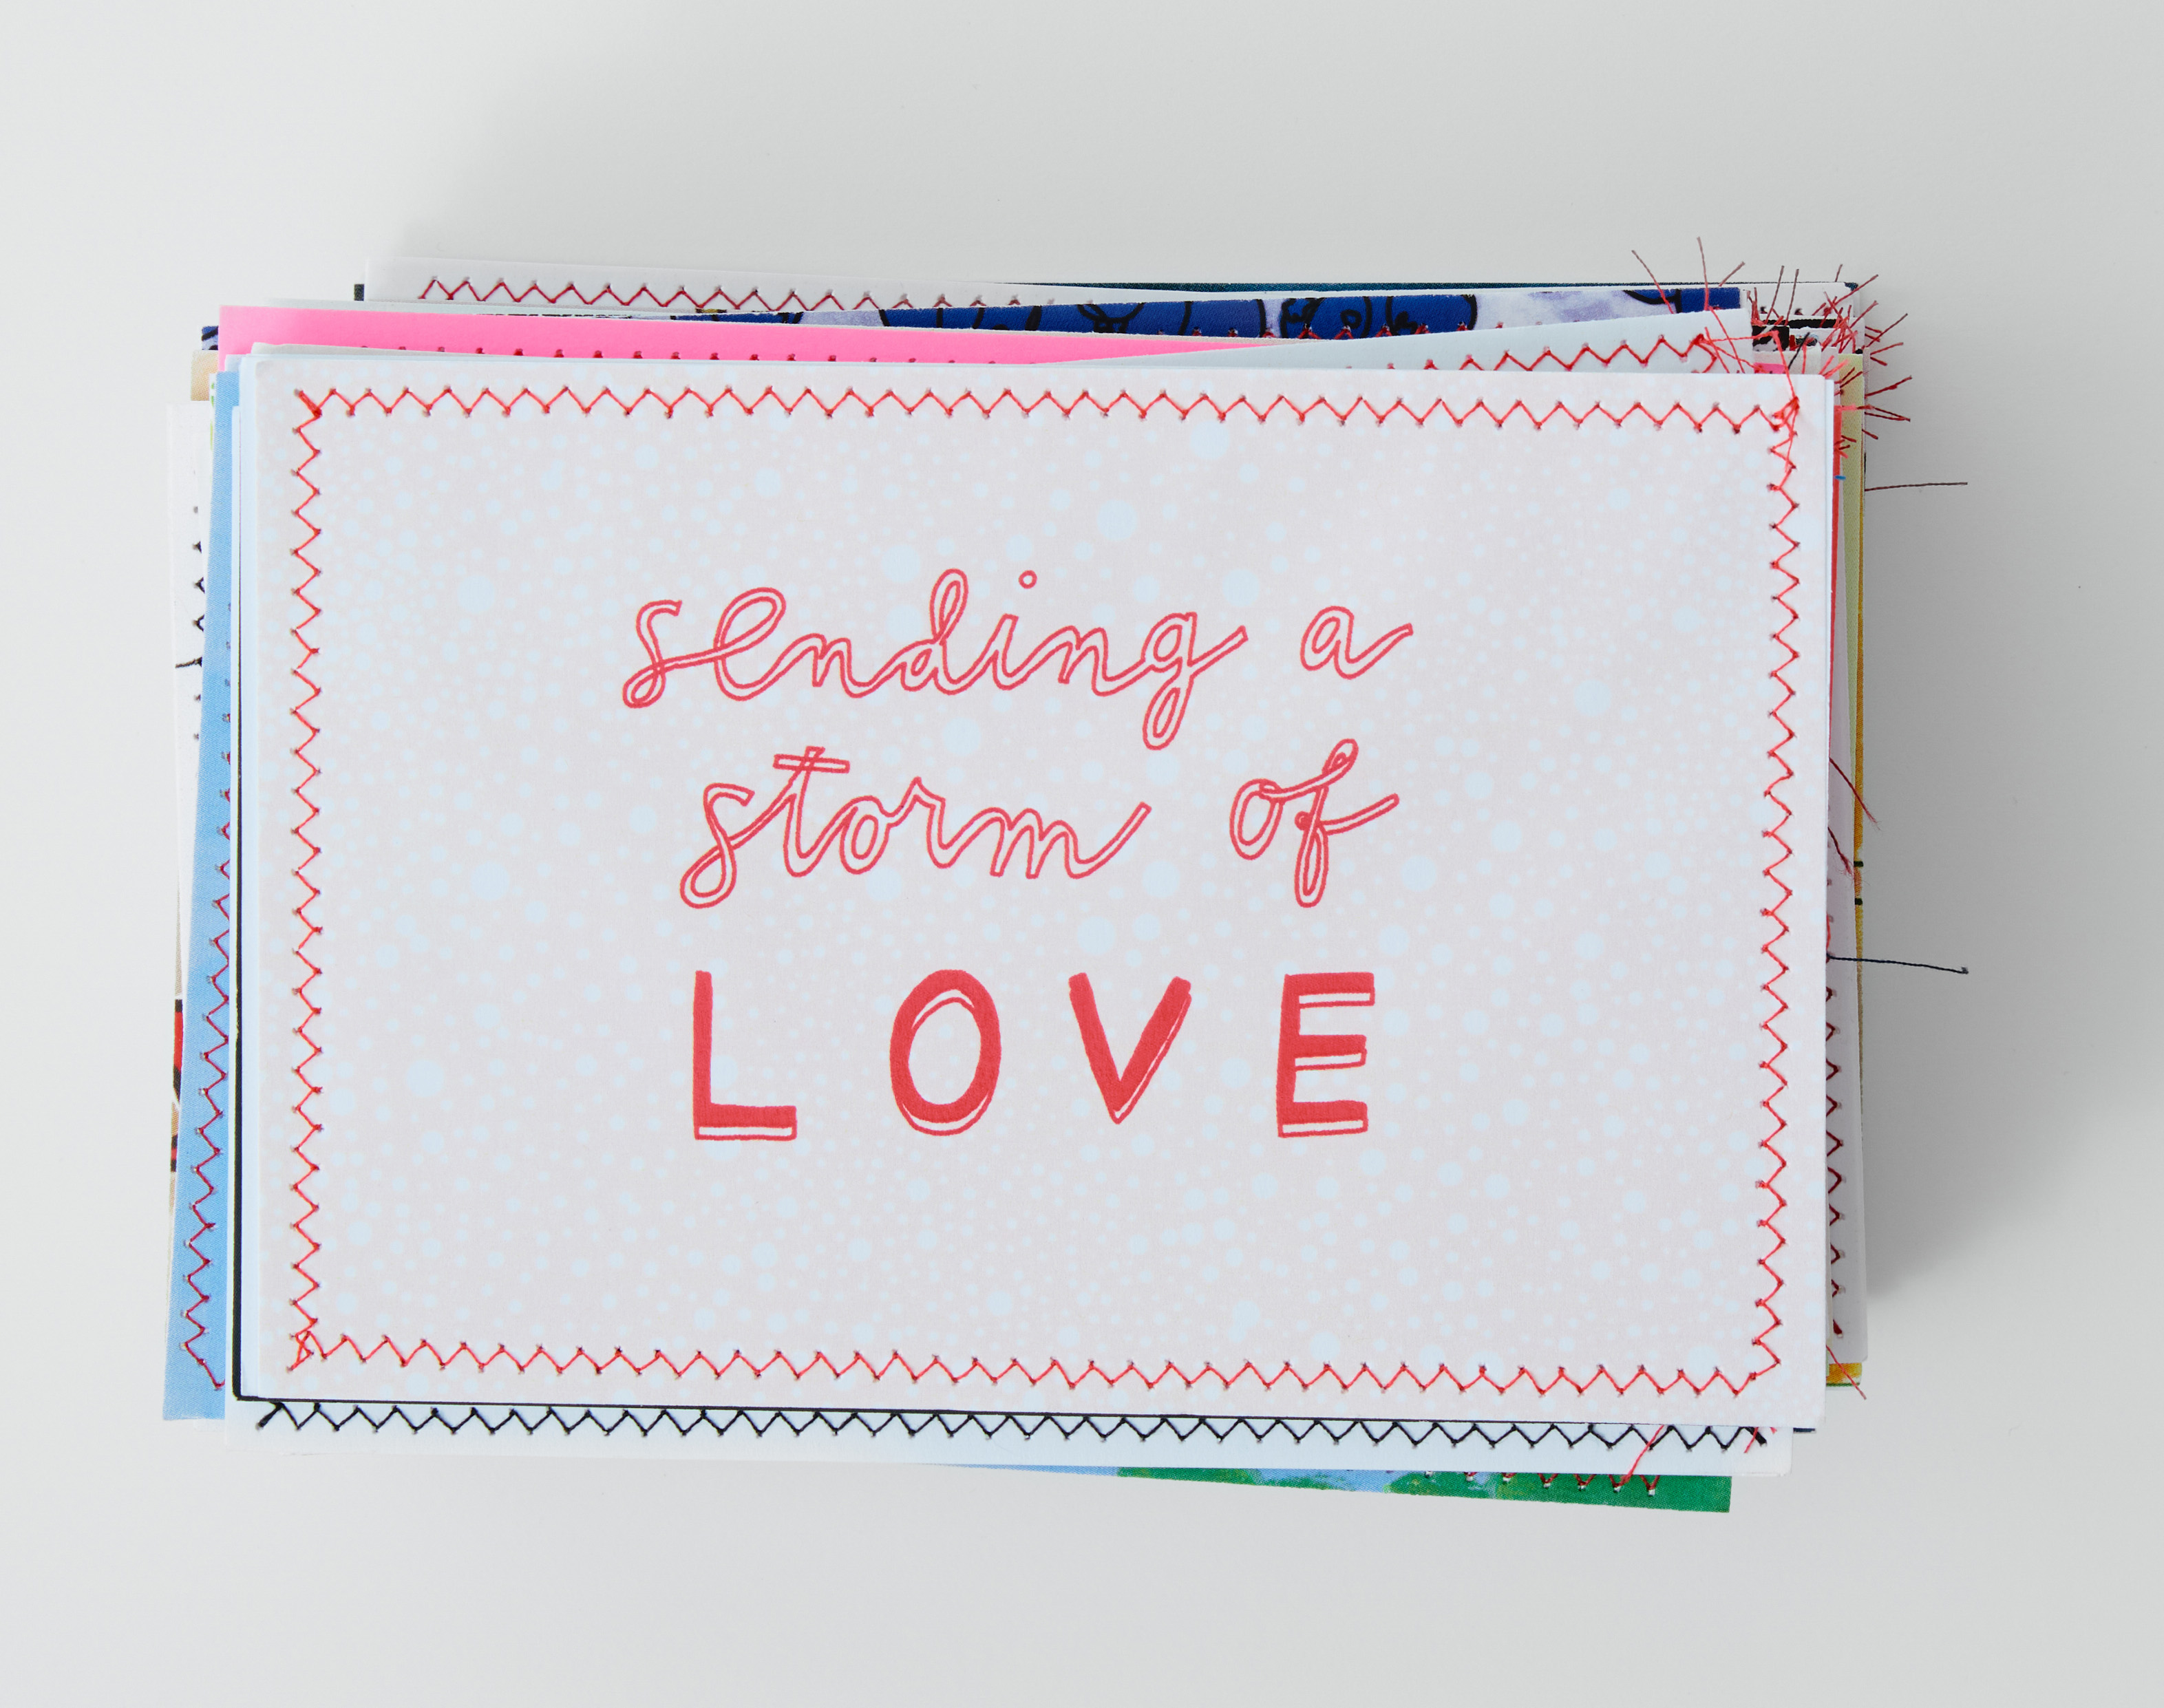 sending a
storm of
LOVE